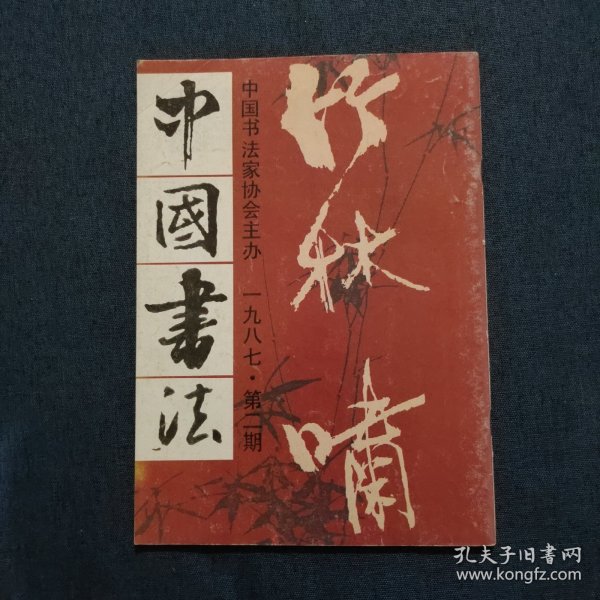 中國書法
中国书法家协会主办 一九八七·第二期
竹林啸
孔夫子旧書网
www.kongfz.com